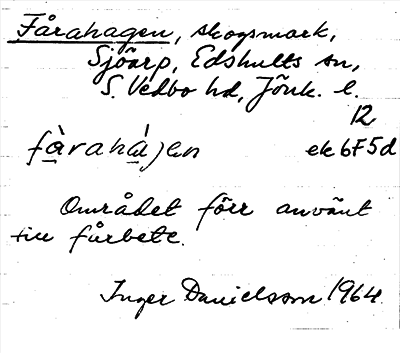 Fårahagen, skogsmark,
Sjöarp, Edshults sn,
S. Vedbo hd, Jönk. l.
12
fàrahájen ek 6F5d
Området förr använt
till fårbete.
Inger Danielsson 1964